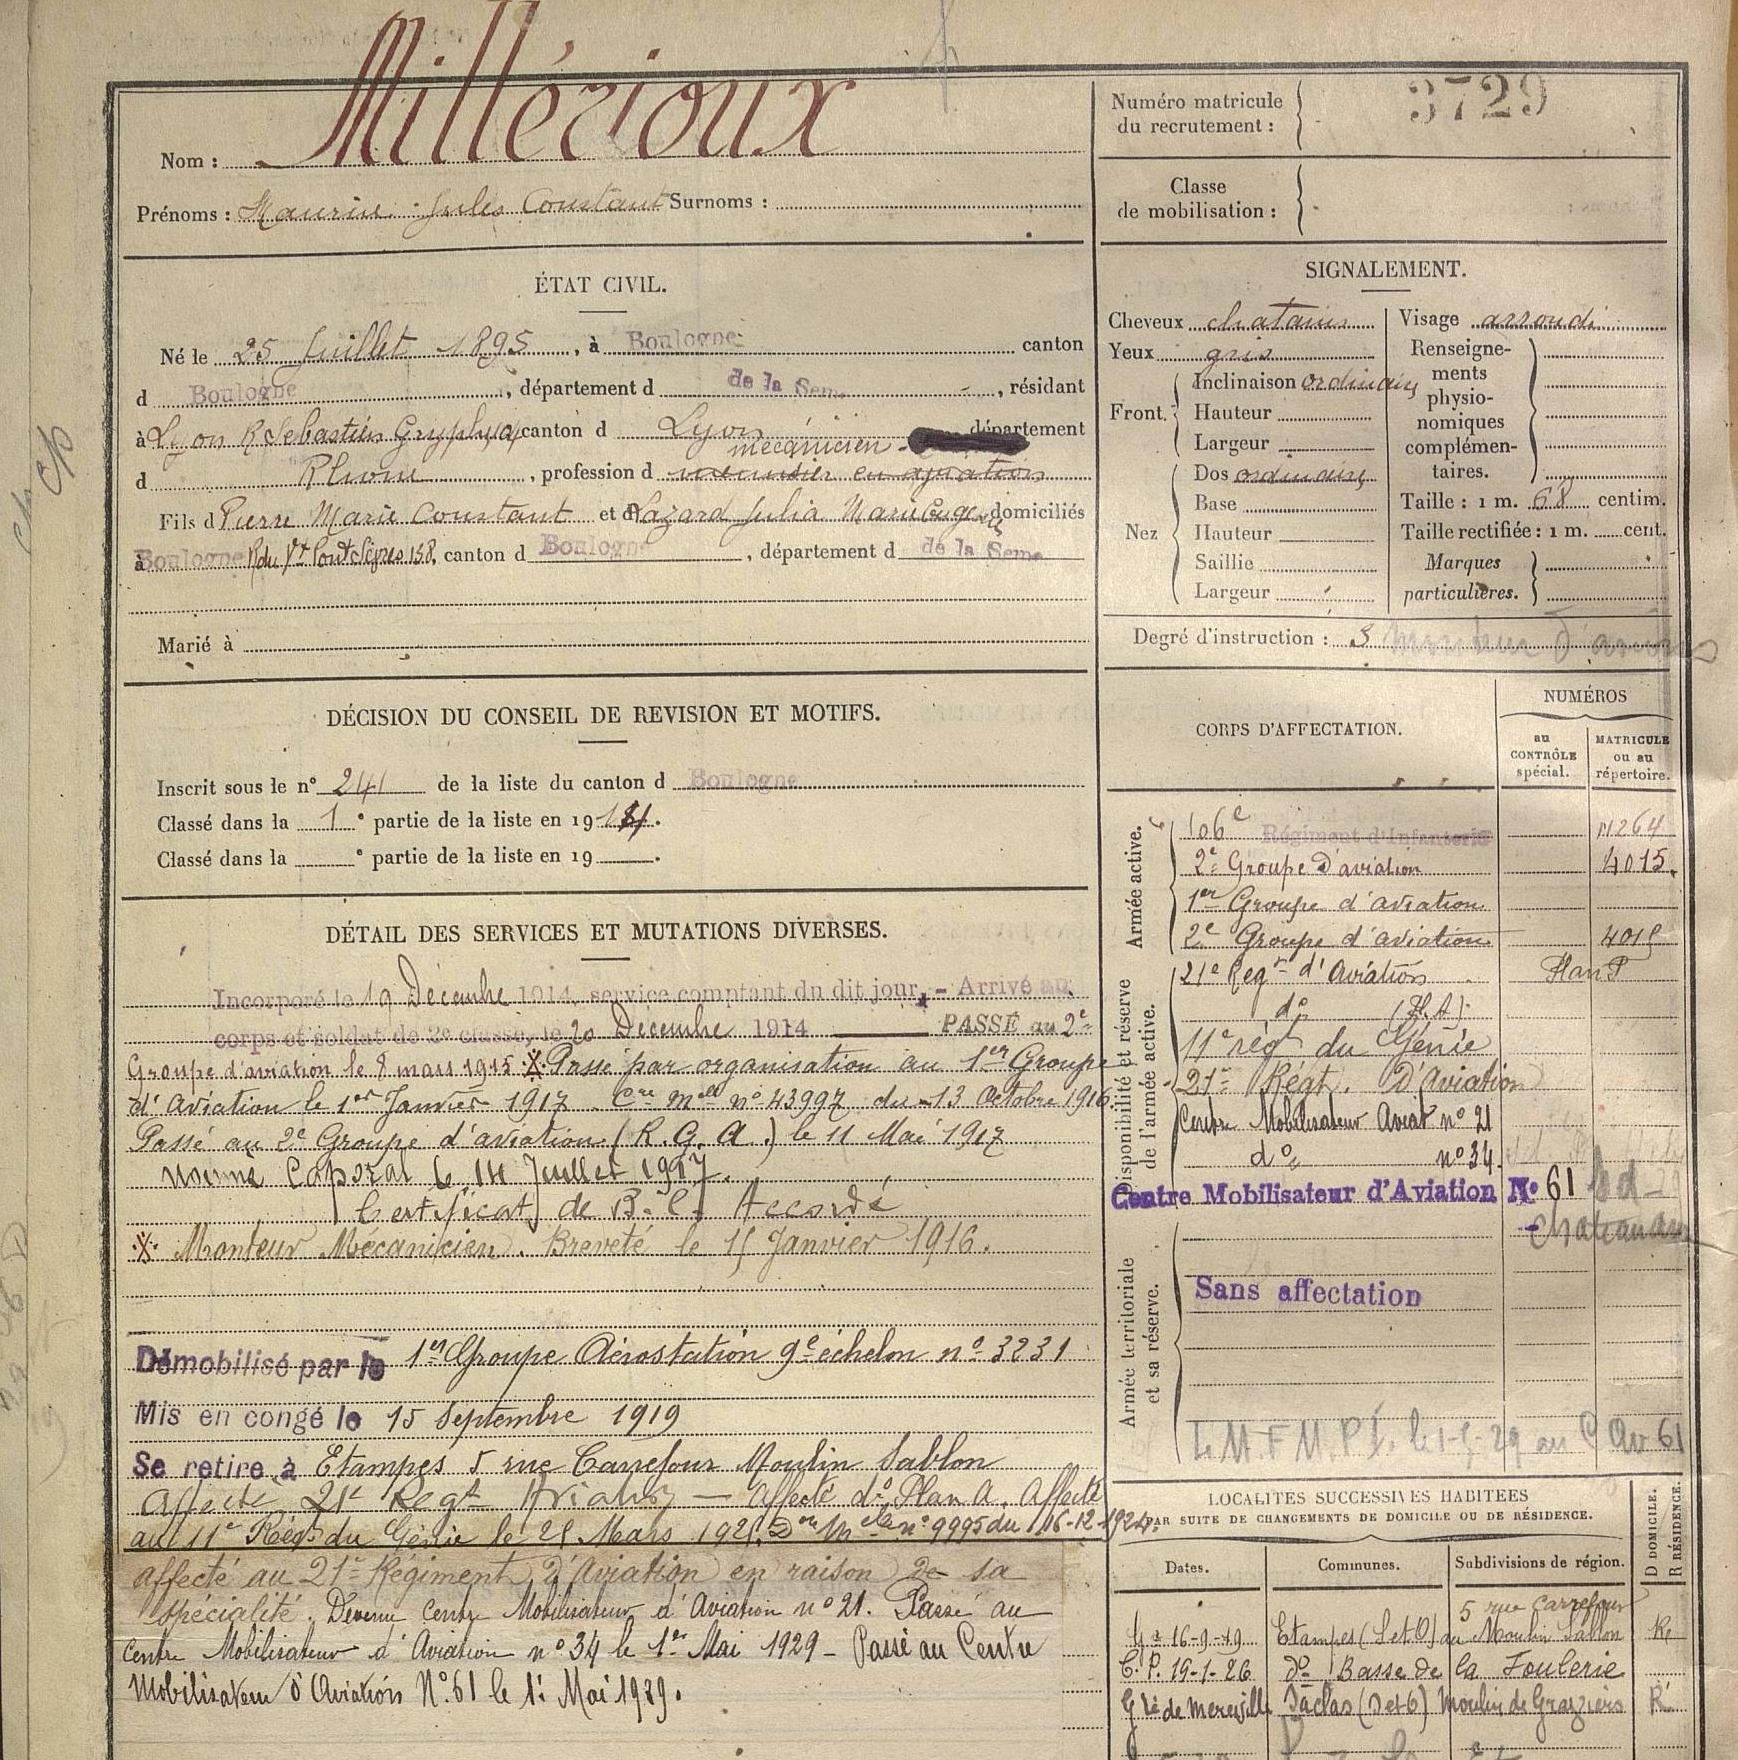 Millérioux
Nom :
Prénoms : Maurice Jules Constant Surnoms :
Numéro matricule du recrutement : 3729
Classe de mobilisation :
ÉTAT CIVIL.
Né le 25 Juillet 1895, à Boulogne canton
d Boulogne, département d de la Seine, résidant
à Lyon R Sébastien Gryphe canton d Lyon département
mécanicien
d Rhône, profession d menuisier en aviation
Fils d Pierre Marie Constant et d Lazard Julia Marie Eugénie domiciliés
à Boulogne R du Vx Pont Sèvres 158, canton d Boulogne, département d de la Seine
Marié à
SIGNALEMENT.
Cheveux chatains Visage arrondi
Yeux gris
Front. Inclinaison ordinaire
Hauteur
Largeur
Nez Dos ordinaire
Base
Hauteur
Saillie
Largeur
Renseigne-
ments
physio-
nomiques
complémen-
taires.
Taille : 1 m. 68 centim.
Taille rectifiée : 1 m. cent.
Marques
particulières.
Degré d'instruction : 3
DÉCISION DU CONSEIL DE REVISION ET MOTIFS.
Inscrit sous le n° 241 de la liste du canton d Boulogne
Classé dans la 1e partie de la liste en 1914.
Classé dans la e partie de la liste en 19 .
DÉTAIL DES SERVICES ET MUTATIONS DIVERSES.
Incorporé le 19 Décembre 1914, service comptant du dit jour, - Arrivé au
corps et soldat de 2e classe, le 20 Décembre 1914 PASSÉ au 2e
Groupe d'aviation le 8 mars 1915 X. Passé par organisation au 1er Groupe
d'Aviation le 1er Janvier 1917. Cre Melle n° 43997 du 13 Octobre 1916
Passé au 2e Groupe d'aviation (R.G.A.) le 11 Mai 1917
nommé Caporal le 14 Juillet 1917.
Certificat de B. C. Accordé
X. Monteur Mécanicien. Breveté le 15 Janvier 1916.
Démobilisé par le 1er Groupe Aérostation 9e échelon n° 3231
Mis en congé le 15 Septembre 1919
Se retire à Etampes 5 rue Carrefour Moulin Sablon
Affecté 21e Regt Aviation — affecté do Plan A. Affecté
au 11e Régt du Génie le 25 Mars 1925. Don Melle n° 9995 du 16-12-1924.
affecté au 21e Régiment d'Aviation en raison de sa
spécialité. Devenu Centre Mobilisateur d'Aviation n° 21. Passé au
Centre Mobilisateur d'Aviation n° 34 le 1er Mai 1929 - Passé au Centre
Mobilisateur d'Aviation N° 61 le 1er Mai 1929.
CORPS D'AFFECTATION.
NUMÉROS
au CONTRÔLE spécial.
MATRICULE ou au répertoire.
Armée active.
106e Régiment d'Infanterie 11264
2e Groupe d'aviation 4015.
1er Groupe d'aviation
2e Groupe d'aviation 4015
Disponibilité et réserve de l'armée active.
21e Regt d'Aviation Plan
do
11e régt du Génie
21e Régt. D'Aviation
Centre Mobilisateur Aviat n° 21
do n° 34.
Centre Mobilisateur d'Aviation N° 61
Armée territoriale et sa réserve.
Sans affectation
le 1-5-29 au C Av 61
LOCALITÉS SUCCESSIVES HABITÉES
PAR SUITE DE CHANGEMENTS DE DOMICILE OU DE RÉSIDENCE.
Dates. Communes. Subdivisions de région. D DOMICILE. R RÉSIDENCE.
5 rue Carrefour
16-9-19 Etampes (S et O) du Moulin Sablon R
C. P. 19-1-26 do Basse de la Foulerie
Saclas (S et O) Moulin de R